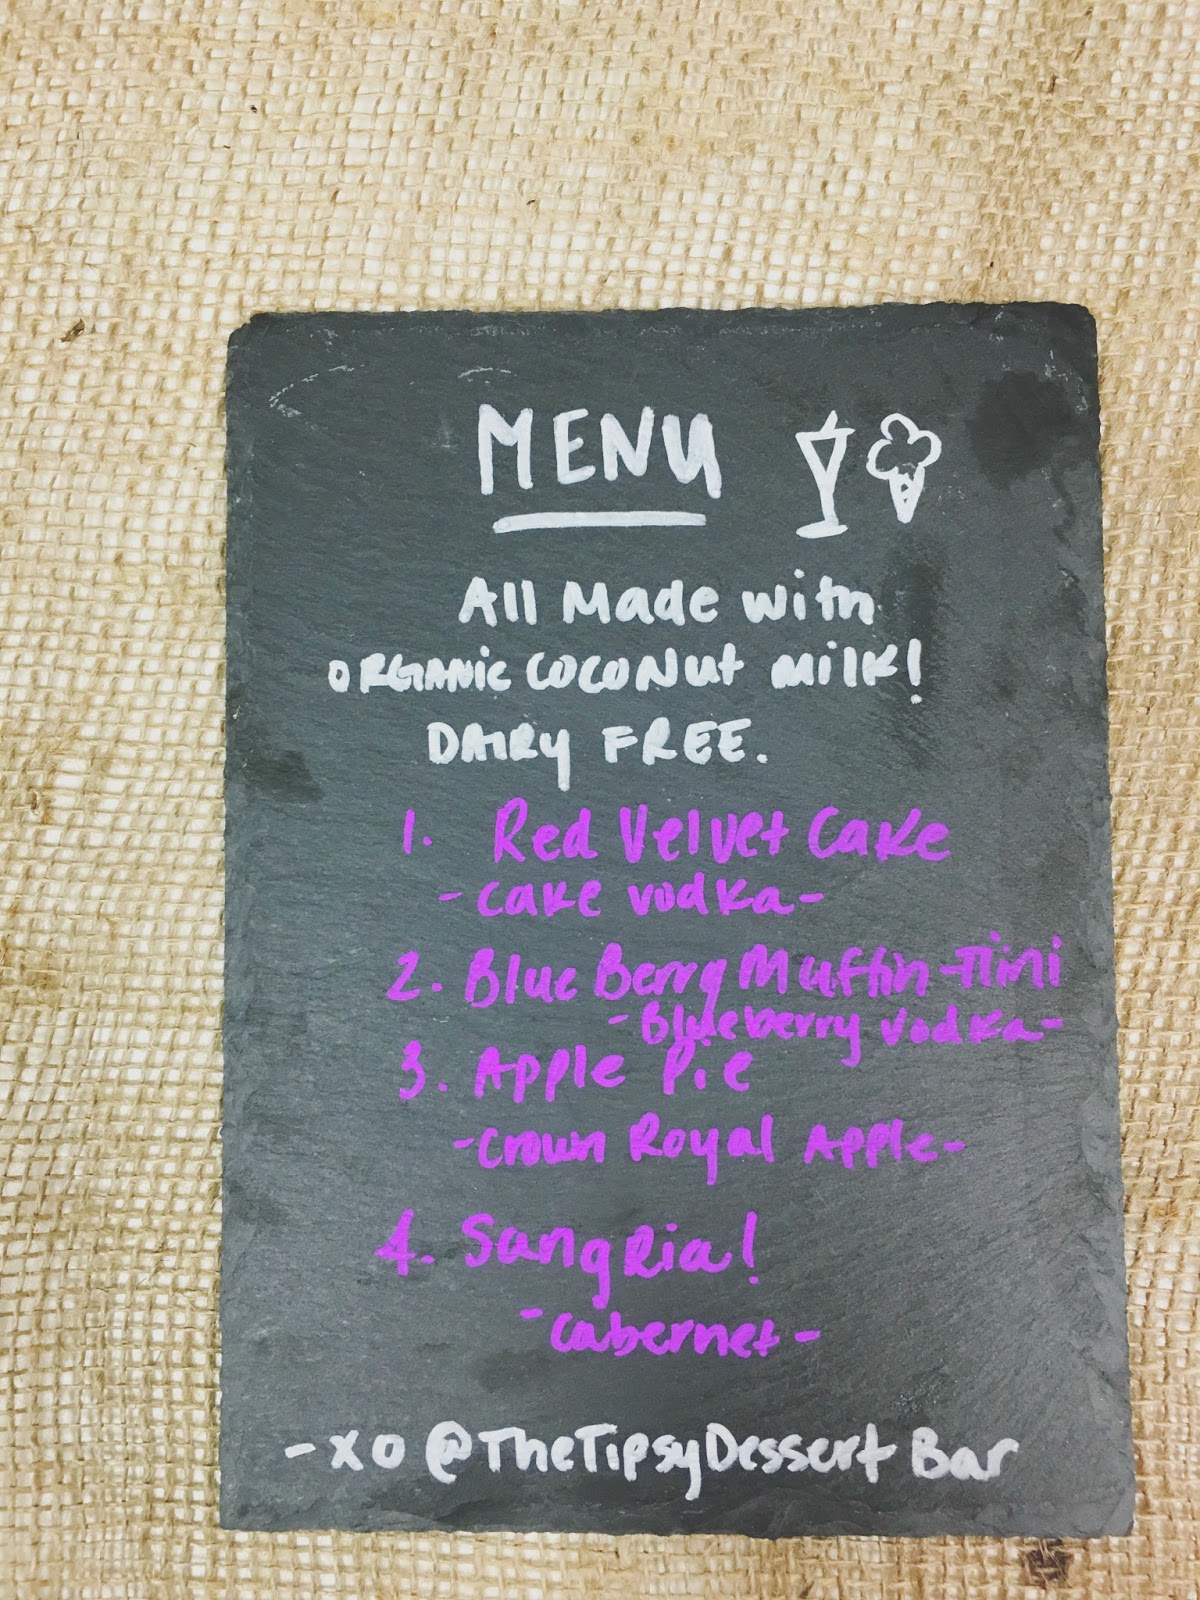 MENU
All Made with
ORGANIC COCONUT MILK!
DAIRY FREE.
1. Red Velvet Cake
- Cake vodka -
2. Blue Berry Muffin-Tini
- Blueberry vodka -
3. Apple Pie
- Crown Royal Apple -
4. Sangria!
- Cabernet -
- xo @TheTipsyDessert Bar